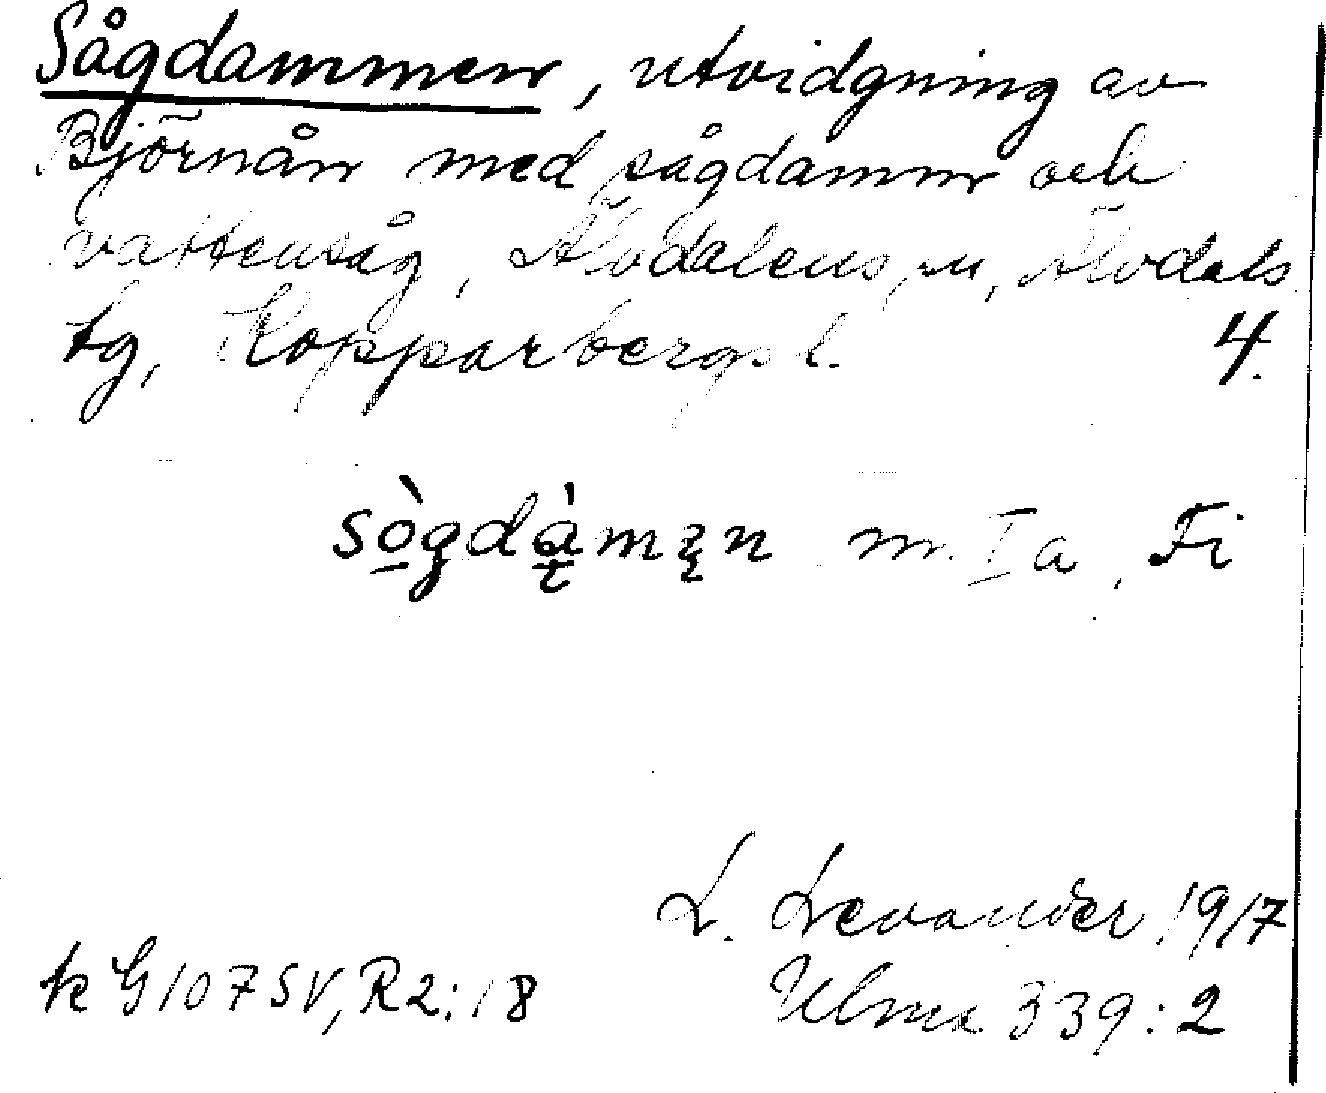 Sågdammen, utvidgning av
Björnån med sågdamm och
vattensåg, Älvdalens sn, Älvdals
tg, Kopparbergs l. 4.
m. I a, Fi
L. Levander 1917
k G 107 SV, R2:18 Ulma 339:2